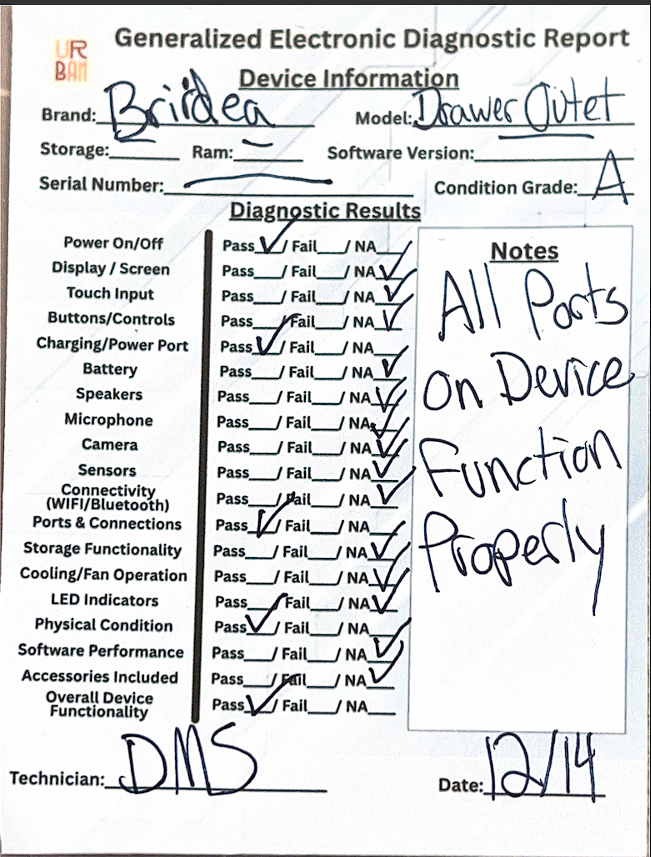 UR
BAN
Generalized Electronic Diagnostic Report
Device Information
Brand: Briidea Model: Drawer Outet
Storage: Ram: Software Version:
Serial Number: Condition Grade: A
Diagnostic Results
Power On/Off Pass ✓/ Fail / NA
Display / Screen Pass / Fail / NA ✓
Touch Input Pass / Fail / NA ✓
Buttons/Controls Pass / Fail / NA ✓
Charging/Power Port Pass ✓/ Fail / NA
Battery Pass / Fail / NA ✓
Speakers Pass / Fail / NA ✓
Microphone Pass / Fail / NA ✓
Camera Pass / Fail / NA ✓
Sensors Pass / Fail / NA ✓
Connectivity
(WIFI/Bluetooth) Pass / Fail / NA ✓
Ports & Connections Pass ✓/ Fail / NA
Storage Functionality Pass / Fail / NA ✓
Cooling/Fan Operation Pass / Fail / NA ✓
LED Indicators Pass / Fail / NA ✓
Physical Condition Pass ✓/ Fail / NA
Software Performance Pass / Fail / NA ✓
Accessories Included Pass / Fail / NA ✓
Overall Device
Functionality Pass ✓/ Fail / NA
Notes
All Ports
on Device
Function
Properly
Technician: DMS Date: 12/14